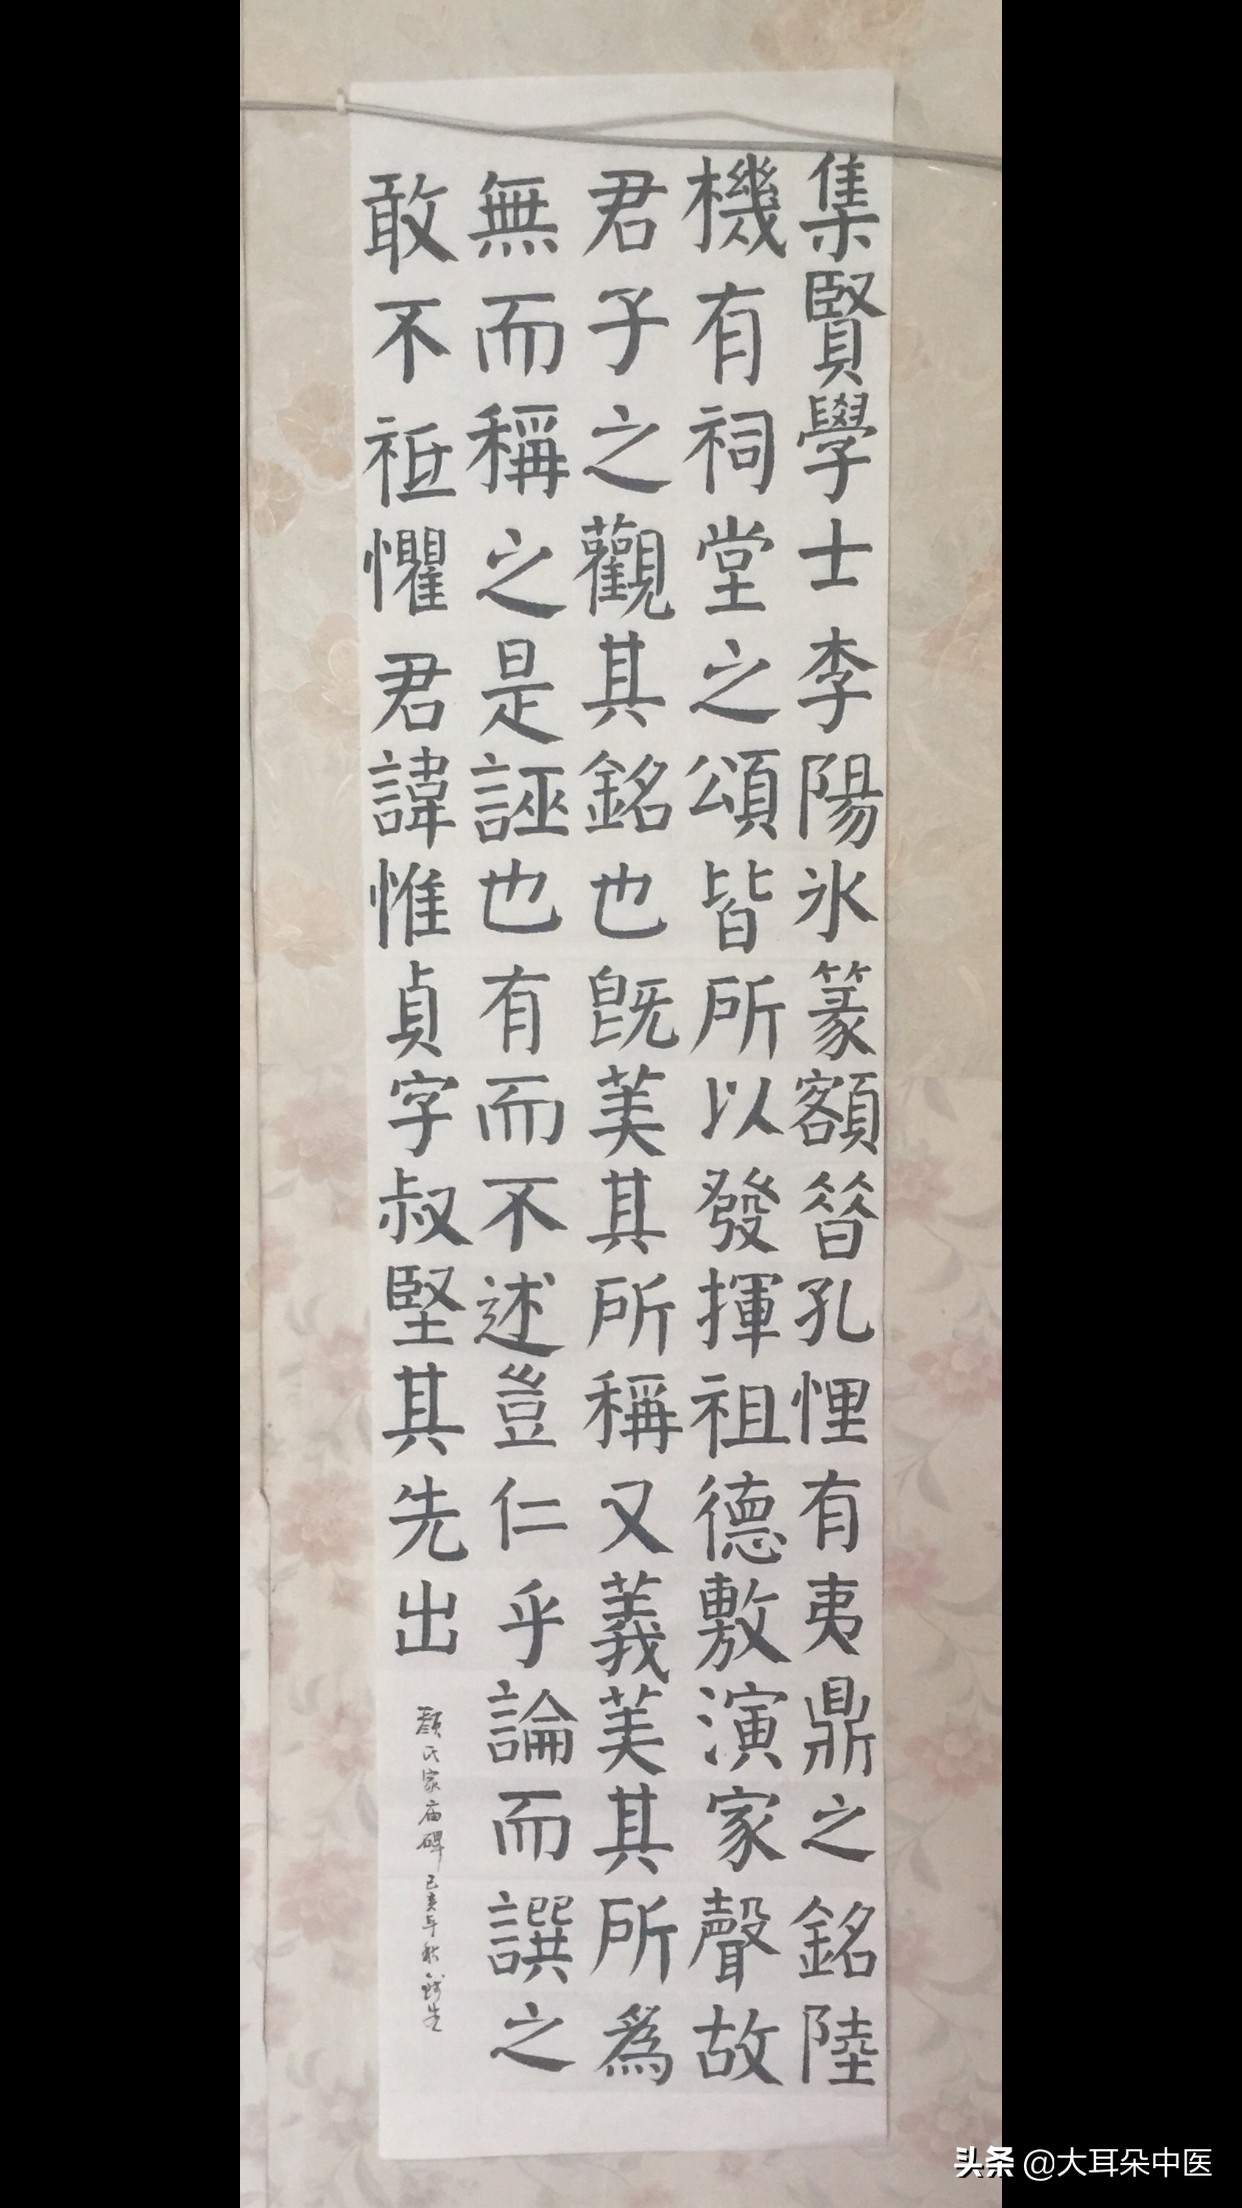 集賢學士李陽冰篆額晉孔悝有夷鼎之銘陸
機有祠堂之頌皆所以發揮祖德敷演家聲故
君子之觀其銘也既美其所稱又義美其所為
無而稱之是誣也有而不述豈仁乎論而譔之
敢不祗懼君諱惟貞字叔堅其先出
顏氏家庙碑己亥年秋
头条 @大耳朵中医